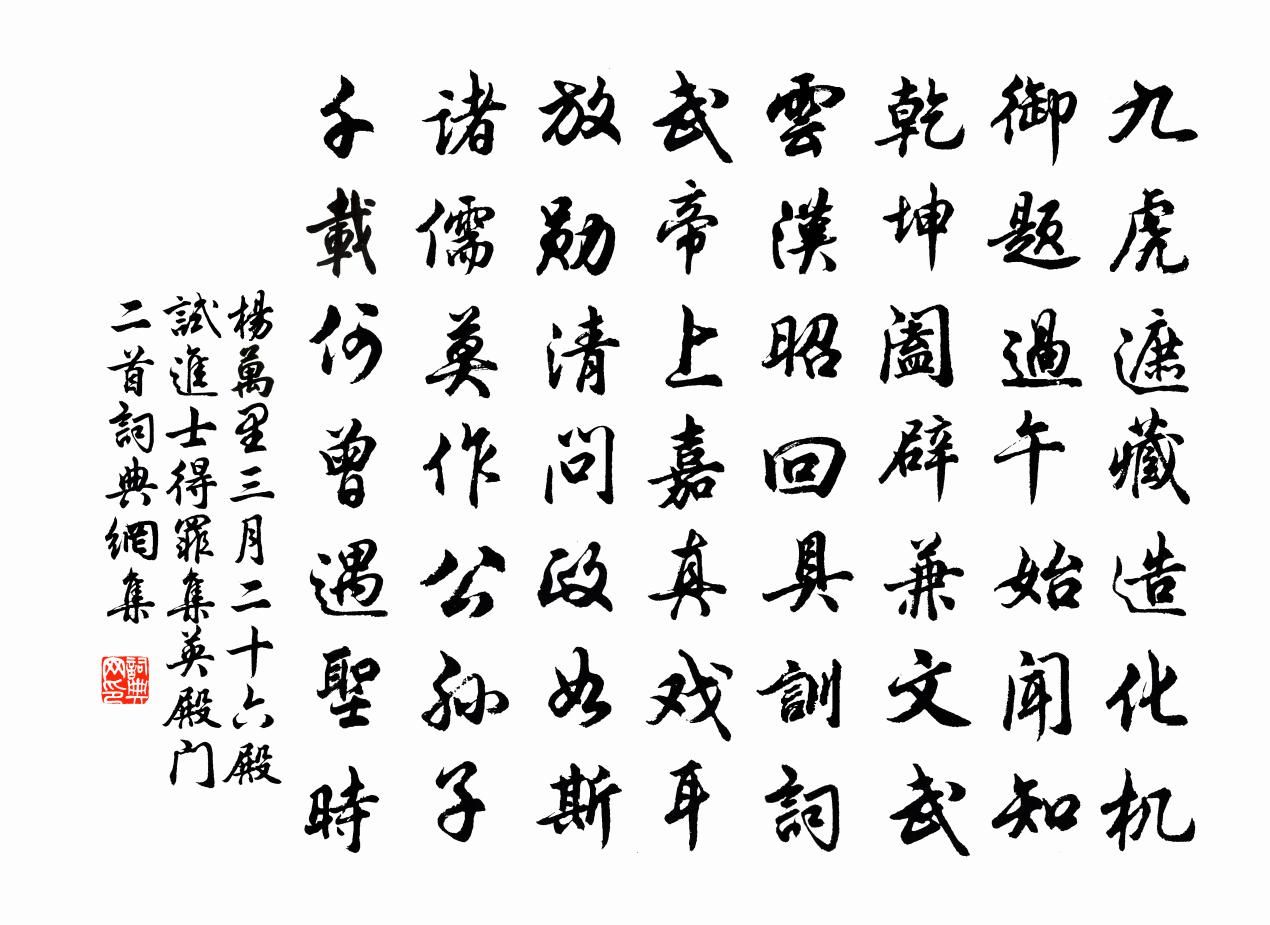 九虎遮藏造化机
御题過午始闻知
乾坤阖辟兼文武
雲漢昭回具訓詞
武帝上嘉真戏耳
放勋清问政如斯
诸儒莫作公孙子
千載何曾遇聖時
楊萬里三月二十六殿
試進士得罪集英殿门
二首詞典網集
詞典网印